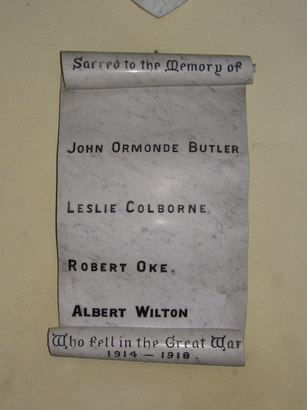 Sacred to the Memory of
JOHN ORMONDE BUTLER
LESLIE COLBORNE.
ROBERT OKE.
ALBERT WILTON
Who fell in the Great War
1914 – 1918.